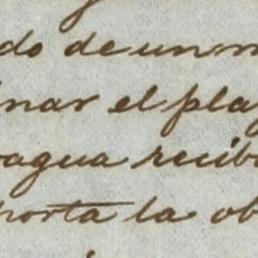 do de un m
inar el pla
agua recib
porta la ob